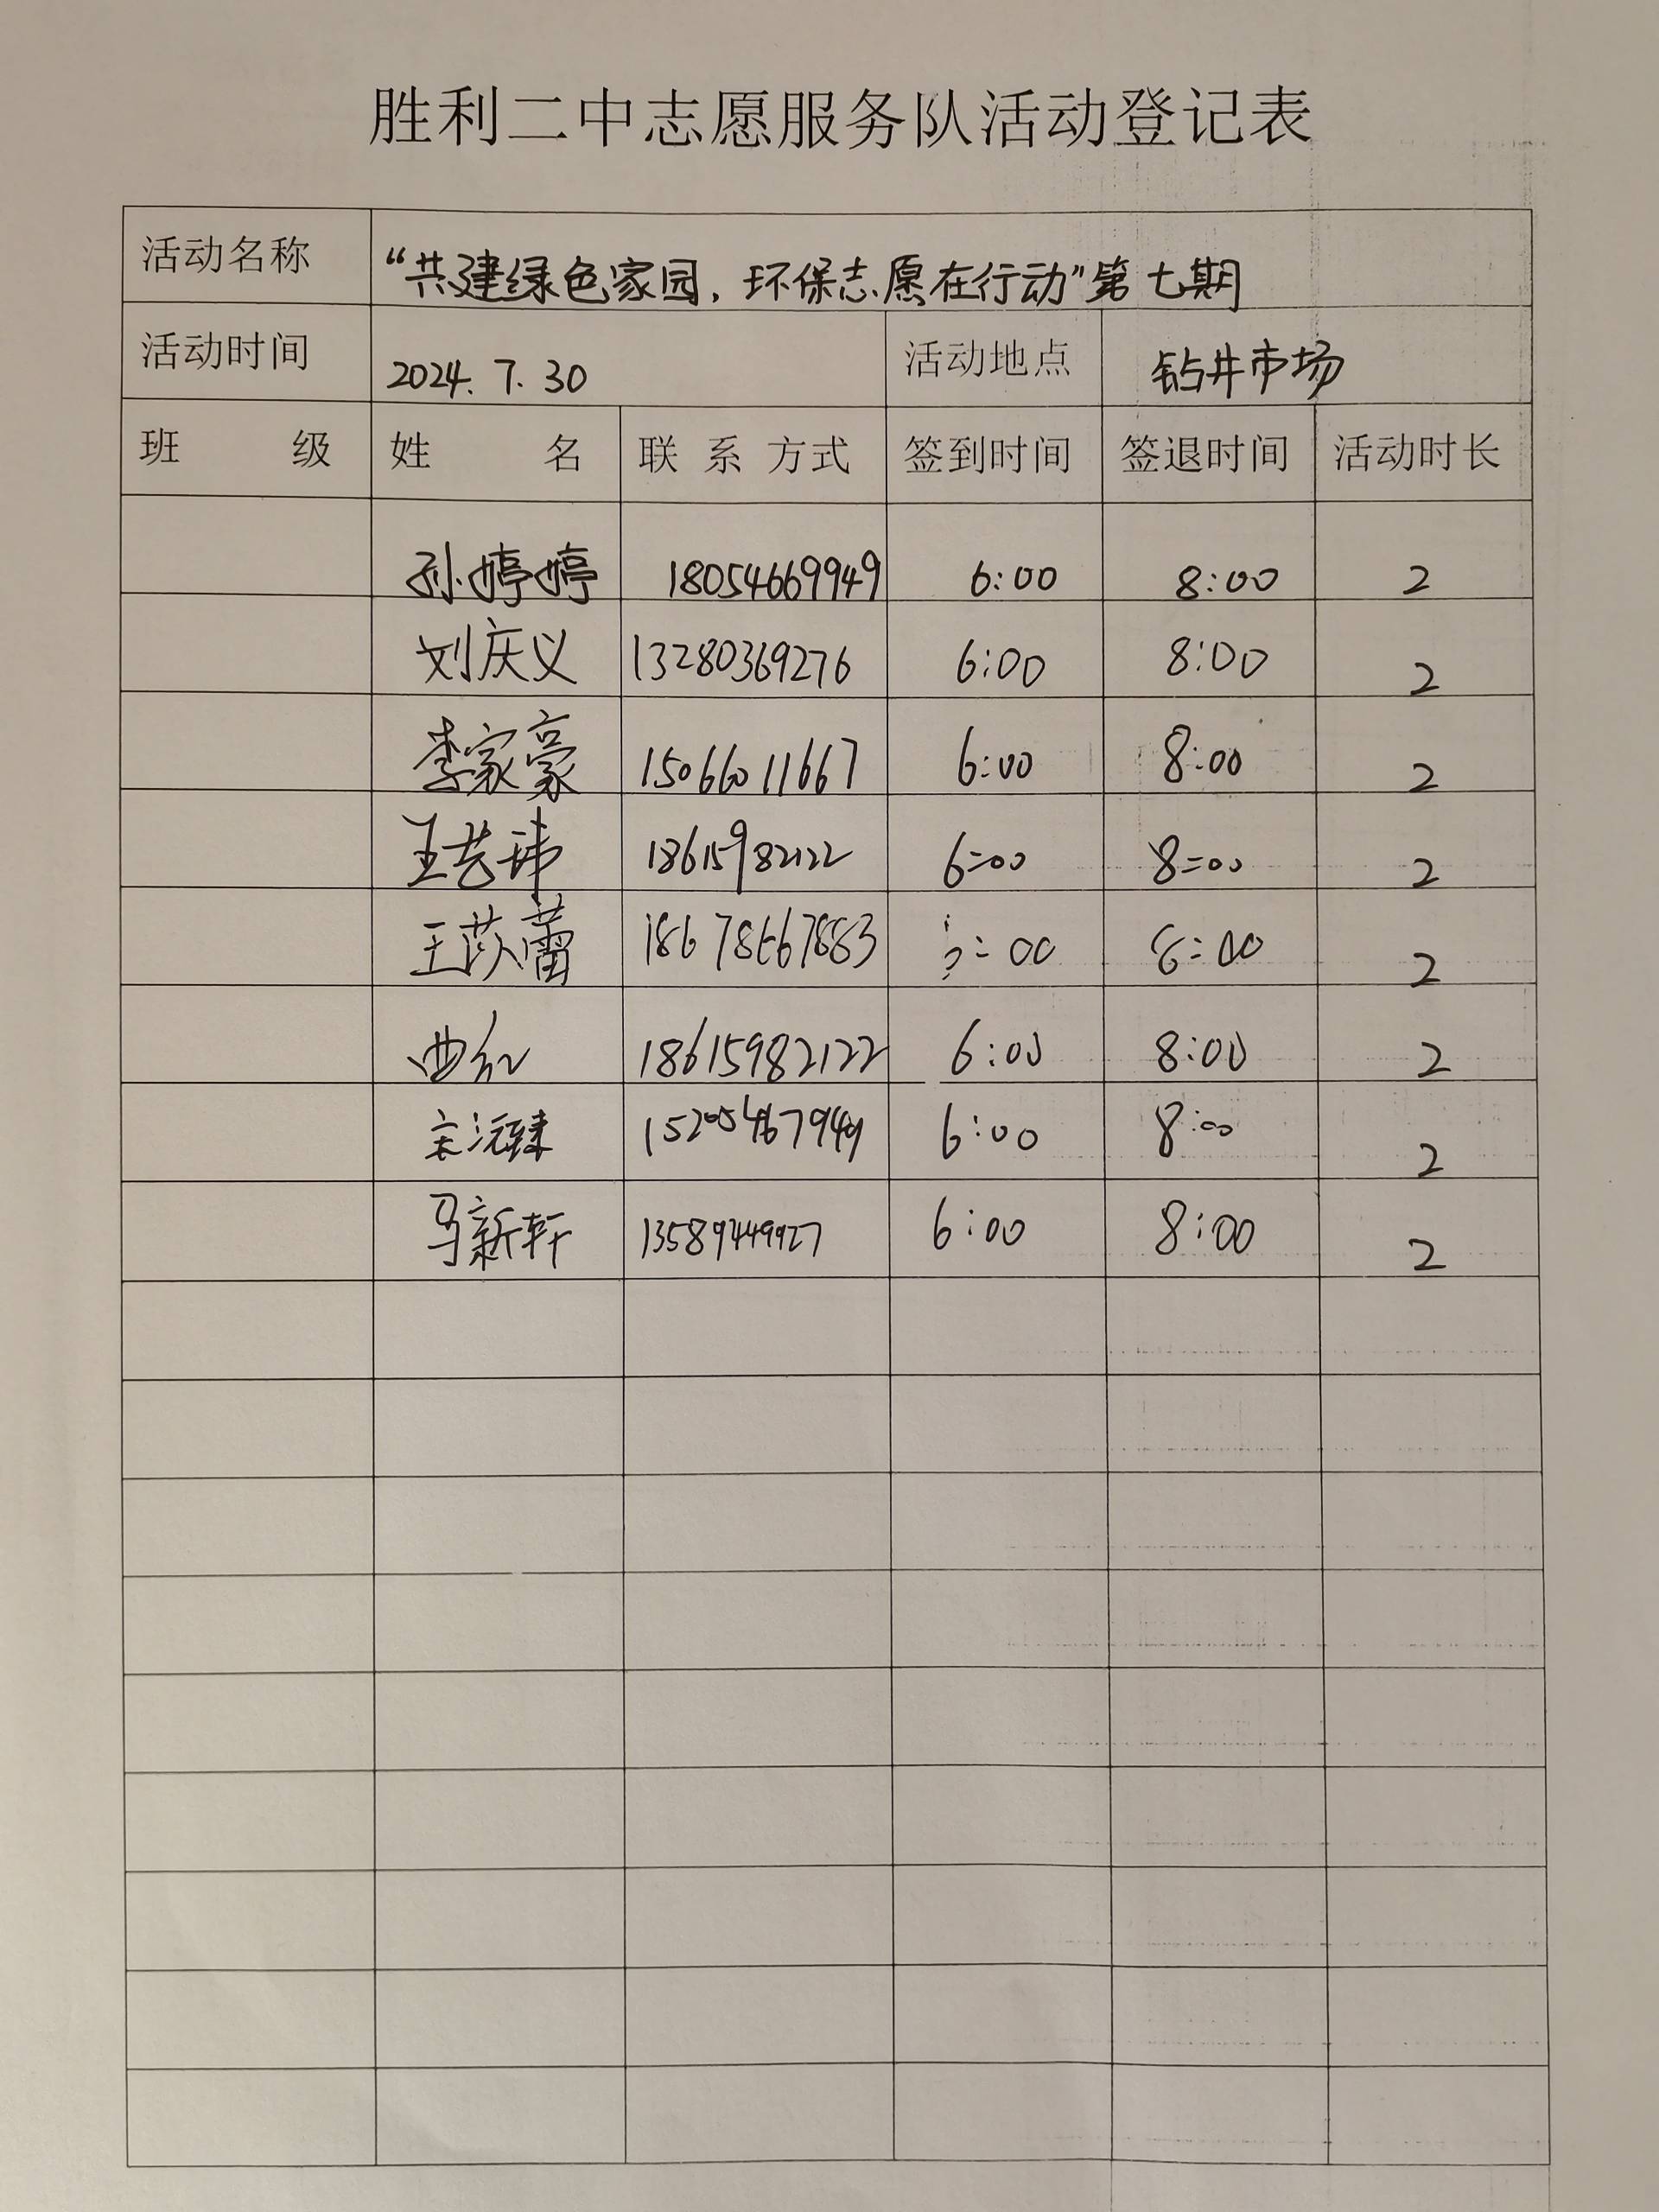 胜利二中志愿服务队活动登记表
活动名称 “共建绿色家园，环保志愿在行动”第七期
活动时间 2024.7.30 活动地点 钻井市场
班级 姓名 联系方式 签到时间 签退时间 活动时长
孙婷婷 18054669949 6:00 8:00 2
刘庆义 13280369276 6:00 8:00 2
李家豪 15066011667 6:00 8:00 2
18615982122 6=00 8=00 2
2
曲红 18615982122 6:00 8:00 2
15205467949 6:00 8:00 2
马新轩 13589449927 6:00 8:00 2